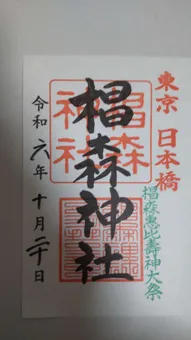 東京 日本橋
椙森恵比壽神大祭
椙森神社
椙森
神社
令和六年十月二十日